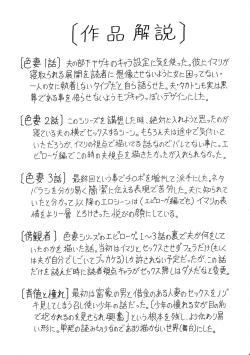 [作品解説]
[色妻1話] 夫の部下ヤザキのキャラ設定に気を使った。彼とイマリが
寝取られる展開を読者に想像させないように女に困ってない・
一人の女に執着しないタイプだと自ら語らせた。夫・タカトシも実は黒
幕である事を悟らせないようモブキャラっぽいデザインにした。
[色妻2話] このシリーズを構想した時、絶対に入れようと思ったのが
寝ている夫の横でセックスするシーン。そもそも夫は途中で気付いて
いただろうが、イマリの視点で描いてる話なのでバレてない事に。エ
ピローグ編でこの時の夫視点を描きたかったが入れられなかった。
[色妻3話] 最終回という事でチ○ポを増やして派手にした。ネタ
バラシを分かり易く簡潔に伝える表現で苦労した。夫に知られて
いたと分かって以降のエロシーンは(エピローグ編でも)イマリの表
情をより一層とろけきった、悦びの顔にしている。
[傍観者] 色妻シリーズのエピローグ。1〜3話の裏で夫が何をして
いたのかを描いた話。当初はイマリと、セックスさせずフェラだけ(もしく
は夫が自分でしごいてブッかける)しか許されない予定だったが、この話
だけを読んだ時に読者視点キャラがセックス無しはダメだなと変更。
[青値と憧れ] 最初は富豪の男と借金のある人妻のセックスをノゾ
キ見してしまう召し使い少年の話だった。(少年の憧れる女が目の前
で犯されるのを見せられ興奮)という根本を残し、より分かり易
い形に。早質の読み切りなのであまり描かない世界(舞台)にした。